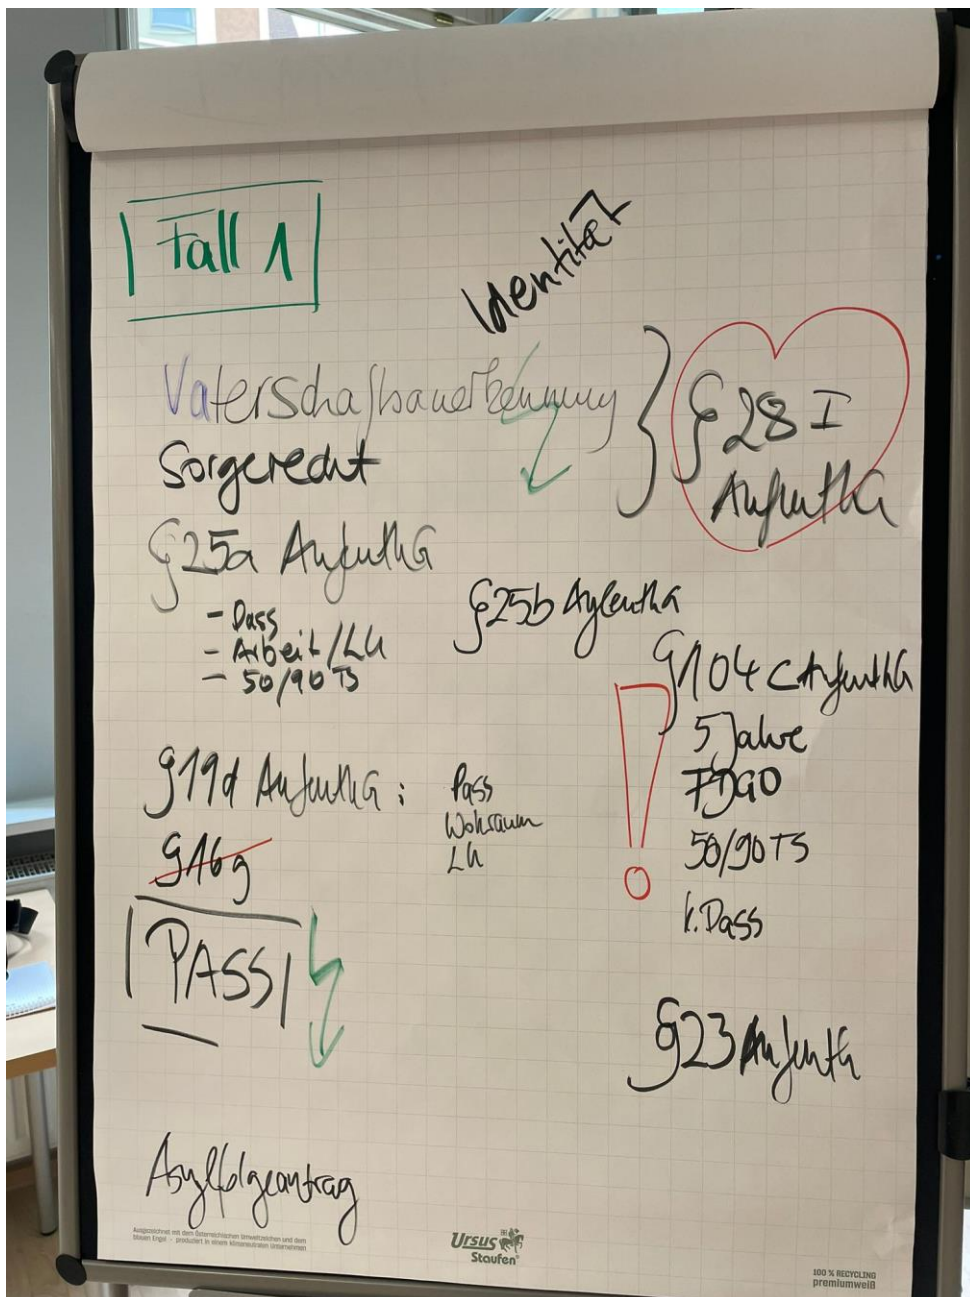 Fall 1
Identität
Vaterschaftsanerkennung
Sorgerecht
§ 28 I
AufenthG
§ 25a AufenthG
- Pass
- Arbeit/LU
- 50/90 TS
§ 25b AufenthG
§ 104c AufenthG
5 Jahre
FDGO
50/90 TS
k. Pass
§ 19d AufenthG:
Pass
Wohnraum
LU
§ 16g
PASS
§ 23 AufenthG
Asylfolgeantrag
Ausgezeichnet mit dem Österreichischen Umweltzeichen und dem
Blauen Engel - produziert in einem klimaneutralen Unternehmen
Ursus
Staufen®
100 % RECYCLING
premiumweiß